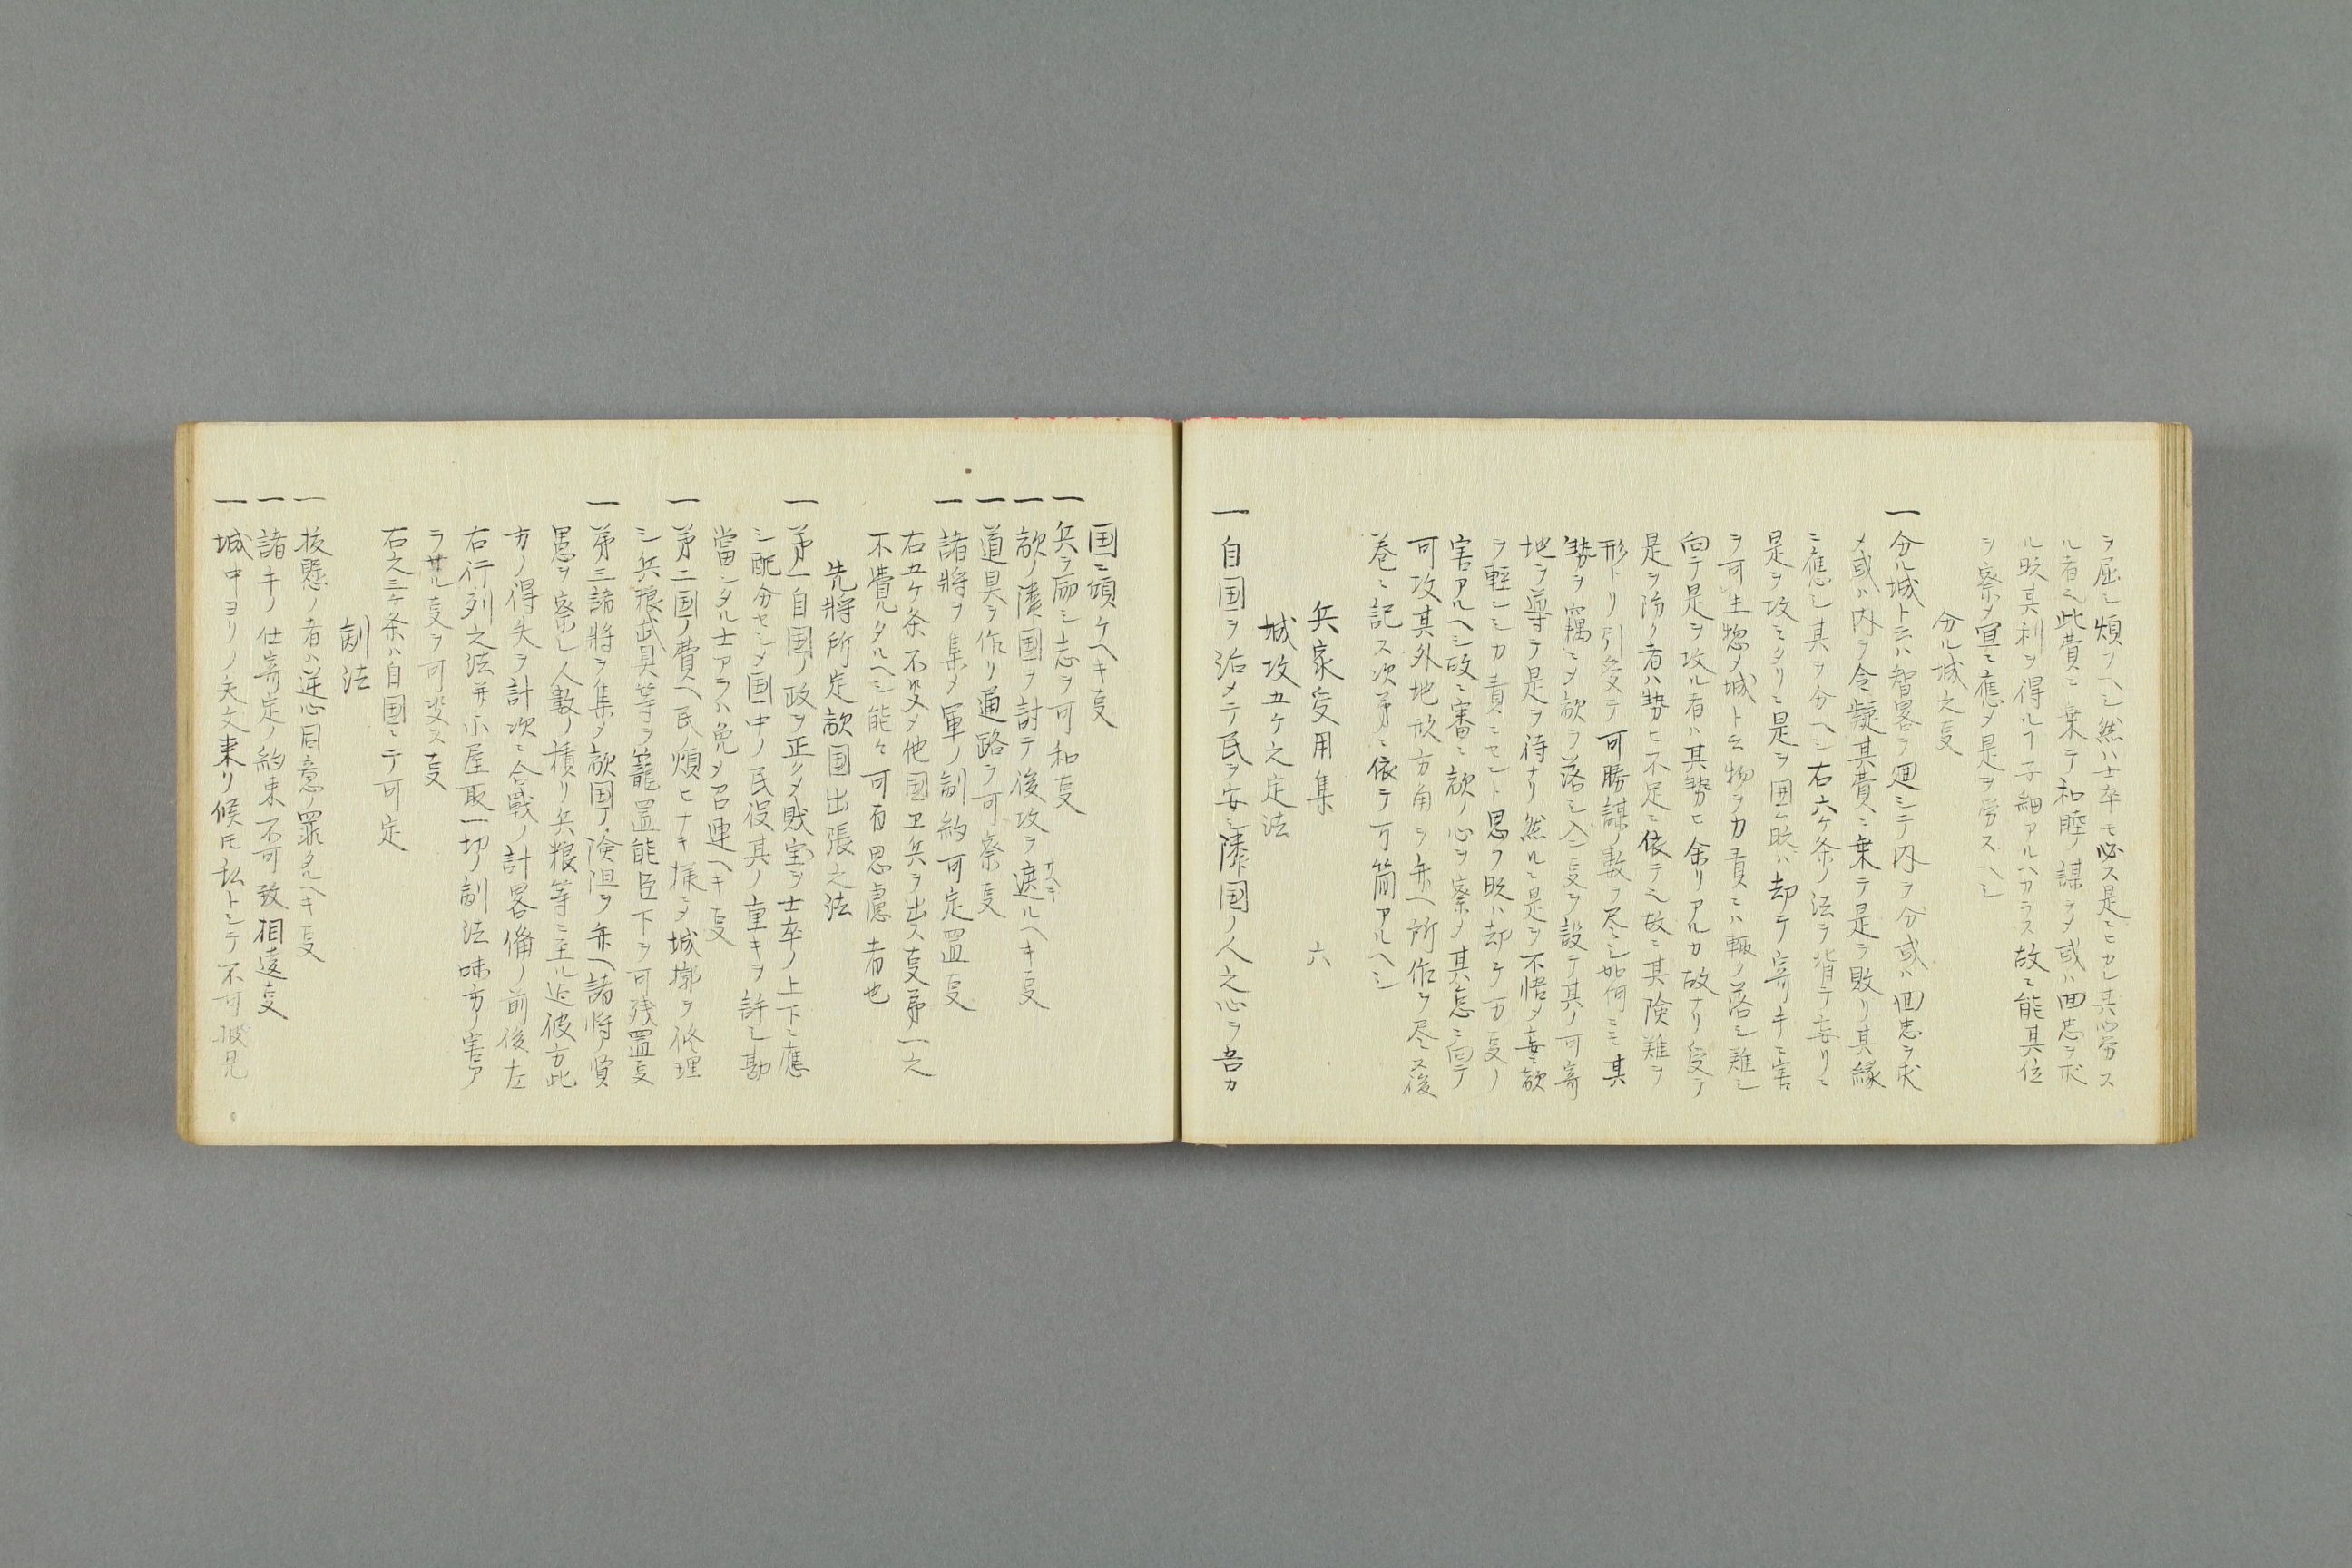 ヲ屈シ煩フヘシ然ハ士卒モ必ス是ニヒカレ其心労ス
ル者ヘ此費ニ乗テ和睦ノ謀ヲメ或ハ回忠ヲ求
ル時其利ヲ得ルヿ子細アルヘカラス故ニ能其位
ヲ察メ宜ニ應メ是ヲ労スヘシ
分ル城之叓
一分ル城ト云ハ智畧ヲ廻シテ内ヲ分或ハ回忠ヲ求
メ或ハ内ヲ令疑其費ニ乗テ是ヲ敗リ其縁
ニ應シ其ヲ分ヘシ右六ケ条ノ法ヲ背テ妄リニ
是ヲ攻ミタリニ是ヲ囲ム時ハ却テ寄手ニ害
ヲ可生惣メ城ト云物ヲ力責ニハ輙ク落シ難シ
向テ是ヲ攻ル者ハ其勢ヒ余リアルカ故ナリ受テ
是ヲ防ク者ハ勢ヒ不足ニ依テ也故ニ其険難ヲ
形トリ引受テ可勝謀ノ数ヲ尽シ如何ニモ其
勢ヲ竊ニメ敵ヲ落シ入ル叓ヲ設テ其ノ可寄
地ヲ導テ是ヲ待ナリ然ルニ是ヲ不悟メ妄ニ敵
ヲ軽シシ力責ニセント思フ時ハ却テ万叓ノ
害アルヘシ故ニ審ニ敵ノ心ヲ察メ其怠ニ向テ
可攻其外地形方角ヲ弁ヘ所作ヲ尽ス後
巻ニ記ス次第ニ依テ可簡アルヘシ
兵家受用集 六
城攻五ケ之定法
一 自国ヲ治メテ民ヲ安シ隣国ノ人之心ヲ吾カ
国ニ傾ケヘキ叓
一 兵ヲ勵シ志ヲ可和叓
一 敵ノ隣国ヲ討テ後攻ヲ遮ルヘキ叓
一 道具ヲ作リ通路ヲ可察叓
一 諸將ヲ集メ軍ノ訓約可定置叓
右五ケ条不究メ他国ヱ兵ヲ出ス叓第一之
不覺タルヘシ能々可有思慮者也
先將所定敵国出張之法
一 第一自国ノ政ヲ正クメ財宝ヲ士卒ノ上下ニ應
シ配分セシメ国中ノ民役其ノ重キヲ許シ勘
當シタル士アラハ免メ召連ヘキ叓
一 第二国ノ費ヘ民ノ煩ヒナキ様ニメ城墎ヲ修理
シ兵粮武具等ヲ籠置能臣下ヲ可残置叓
一 第三諸將ヲ集メ敵国ノ険阻ヲ弁ヘ諸將ノ賢
愚ヲ察シ人数ノ積リ兵粮等ニ至ル迠彼方此
方ノ得失ヲ計次ニ合戰ノ計畧備ノ前後左
右行列之法并小屋取一切ノ訓法味方ノ害ア
ラサル叓ヲ可定叓
右之三ケ条ハ自国ニテ可定
訓法
一 抜懸ノ者ハ逆心同意ノ罪タルヘキ叓
一 諸手ノ仕寄定ノ約束不可致相違叓
一 城中ヨリノ矢文来リ候氏私トシテ不可披見